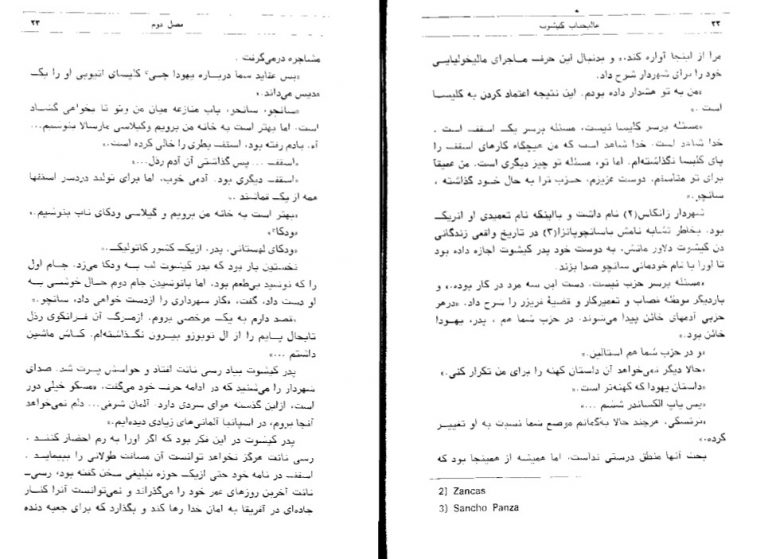 عالیجناب کیشوت
۲۲
مرا از اینجا آواره کند.» و بدنبال این حرف ماجرای مالیخولیایی
خود را برای شهردار شرح داد.
«من به تو هشدار داده بودم. این نتیجه اعتماد کردن به کلیسا
است.»
«مسئله برسر کلیسا نیست، مسئله برسر یک اسقف است.
خدا شاهد است که من هیچگاه کارهای اسقف را
پای کلیسا نگذاشته‌ام. اما تو، مسئله تو چیز دیگری است. من عمیقاً
برای تو متاسفم، دوست عزیزم، حزب ترا به حال خود گذاشته،
سانچو.»
شهردار زانکاس(۲) نام داشت و بااینکه نام تعمیدی او انریک
بود، بخاطر تشابه نامش باسانچوپانزا(۳) در تاریخ واقعی زندگانی
دن کیشوت دلاور مانش، به دوست خود پدر کیشوت اجازه داده بود
تا اورا با نام خودمانی سانچو صدا بزند.
«مسئله برسر حزب نیست. دست این سه مرد در کار بوده.» و
باردیگر موطئه نصاب و تعمیرکار و قضیهٔ فریزر را شرح داد. «درهر
حزبی آدمهای خائن پیدا می‌شوند. در حزب شما هم، پدر، یهودا
خائن بود.»
«و در حزب شما هم استالین.»
«حالا دیگر نمی‌خواهد آن داستان کهنه را برای من تکرار کنی.»
«داستان یهودا که کهنه‌تر است.»
«پس پاپ الکساندر ششم ...»
«ترتسکی. هرچند حالا به‌گمانم موضع شما نسبت به او تغییر
کرده.»
بحث آنها منطق درستی نداشت. اما همیشه از همینجا بود که
2) Zancas
3) Sancho Panza
فصل دوم
۲۳
مشاجره درمی‌گرفت.
«پس عقاید شما درباره یهودا چی؟ کلیسای اتیوپی او را یک
قدیس می‌داند.»
«سانچو، سانچو، باب منازعه میان من و تو تا بخواهی گشاد
است. اما بهتر است به خانه من برویم و گیلاسی مارسالا بنوشیم...
آه، یادم رفته بود، اسقف بطری را خالی کرده است.»
«اسقف ... پس گذاشتی آن آدم رذل...»
«اسقف دیگری بود. آدمی خوب، اما برای تولید دردسر اسقفها
همه از یک قماشند.»
«بهتر است به خانه من برویم و گیلاسی ودکای ناب بنوشیم.»
«ودکا؟»
«ودکای لهستانی، پدر. ازیک کشور کاتولیک.»
نخستین بار بود که پدر کیشوت لب به ودکا می‌زد. جام اول
را که نوشید بی‌طعم بود، اما بانوشیدن جام دوم حال خوشی به
او دست داد، گفت، «کار شهرداری را ازدست خواهی داد، سانچو.»
«قصد دارم به یک مرخصی بروم. ازمرگ آن فرانکوی رذل
تابحال پایم را از ال توبوزو بیرون نگذاشته‌ام. کاش ماشین
داشتم ...»
پدر کیشوت بیاد رسی نانت افتاد و حواسش پرت شد. صدای
شهردار را می‌شنید که در ادامه حرف خود می‌گفت، «مسکو خیلی دور
است، ازاین گذشته هوای سردی دارد. آلمان شرقی... دلم نمی‌خواهد
آنجا بروم، در اسپانیا آلمانی‌های زیادی دیده‌ایم.»
پدر کیشوت در این فکر بود که اگر اورا به رم احضار کنند،
رسی نانت هرگز نخواهد توانست آن مسافت طولانی را بپیماید.
اسقف در نامه خود حتی ازیک حوزه تبلیغی سخن گفته بود، رسی‌ـ
نانت آخرین روزهای عمر خود را می‌گذراند و نمی‌توانست آنرا کنار
جاده‌ای در آفریقا به امان خدا رها کند و بگذارد که برای جعبه دنده